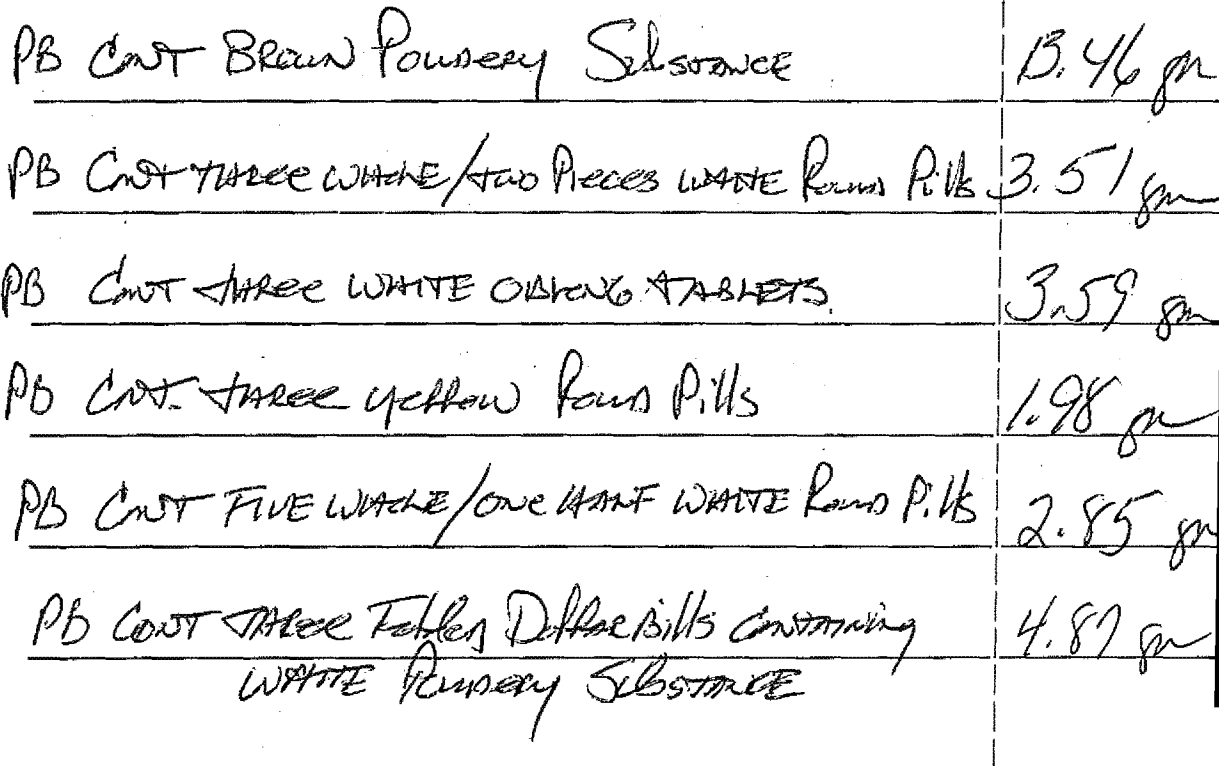 PB CONT BROWN POWDERY SUBSTANCE 13.46 gm
PB CONT THREE WHOLE/TWO PIECES WHITE ROUND PILLS 3.51 gm
PB CONT THREE WHITE OBLONG TABLETS. 3.59 gm
PB CONT. THREE YELLOW ROUND PILLS 1.98 gm
PB CONT FIVE WHOLE/ONE HALF WHITE ROUND PILLS 2.85 gm
PB CONT THREE FOLDED DOLLAR BILLS CONTAINING 4.87 gm
WHITE POWDERY SUBSTANCE